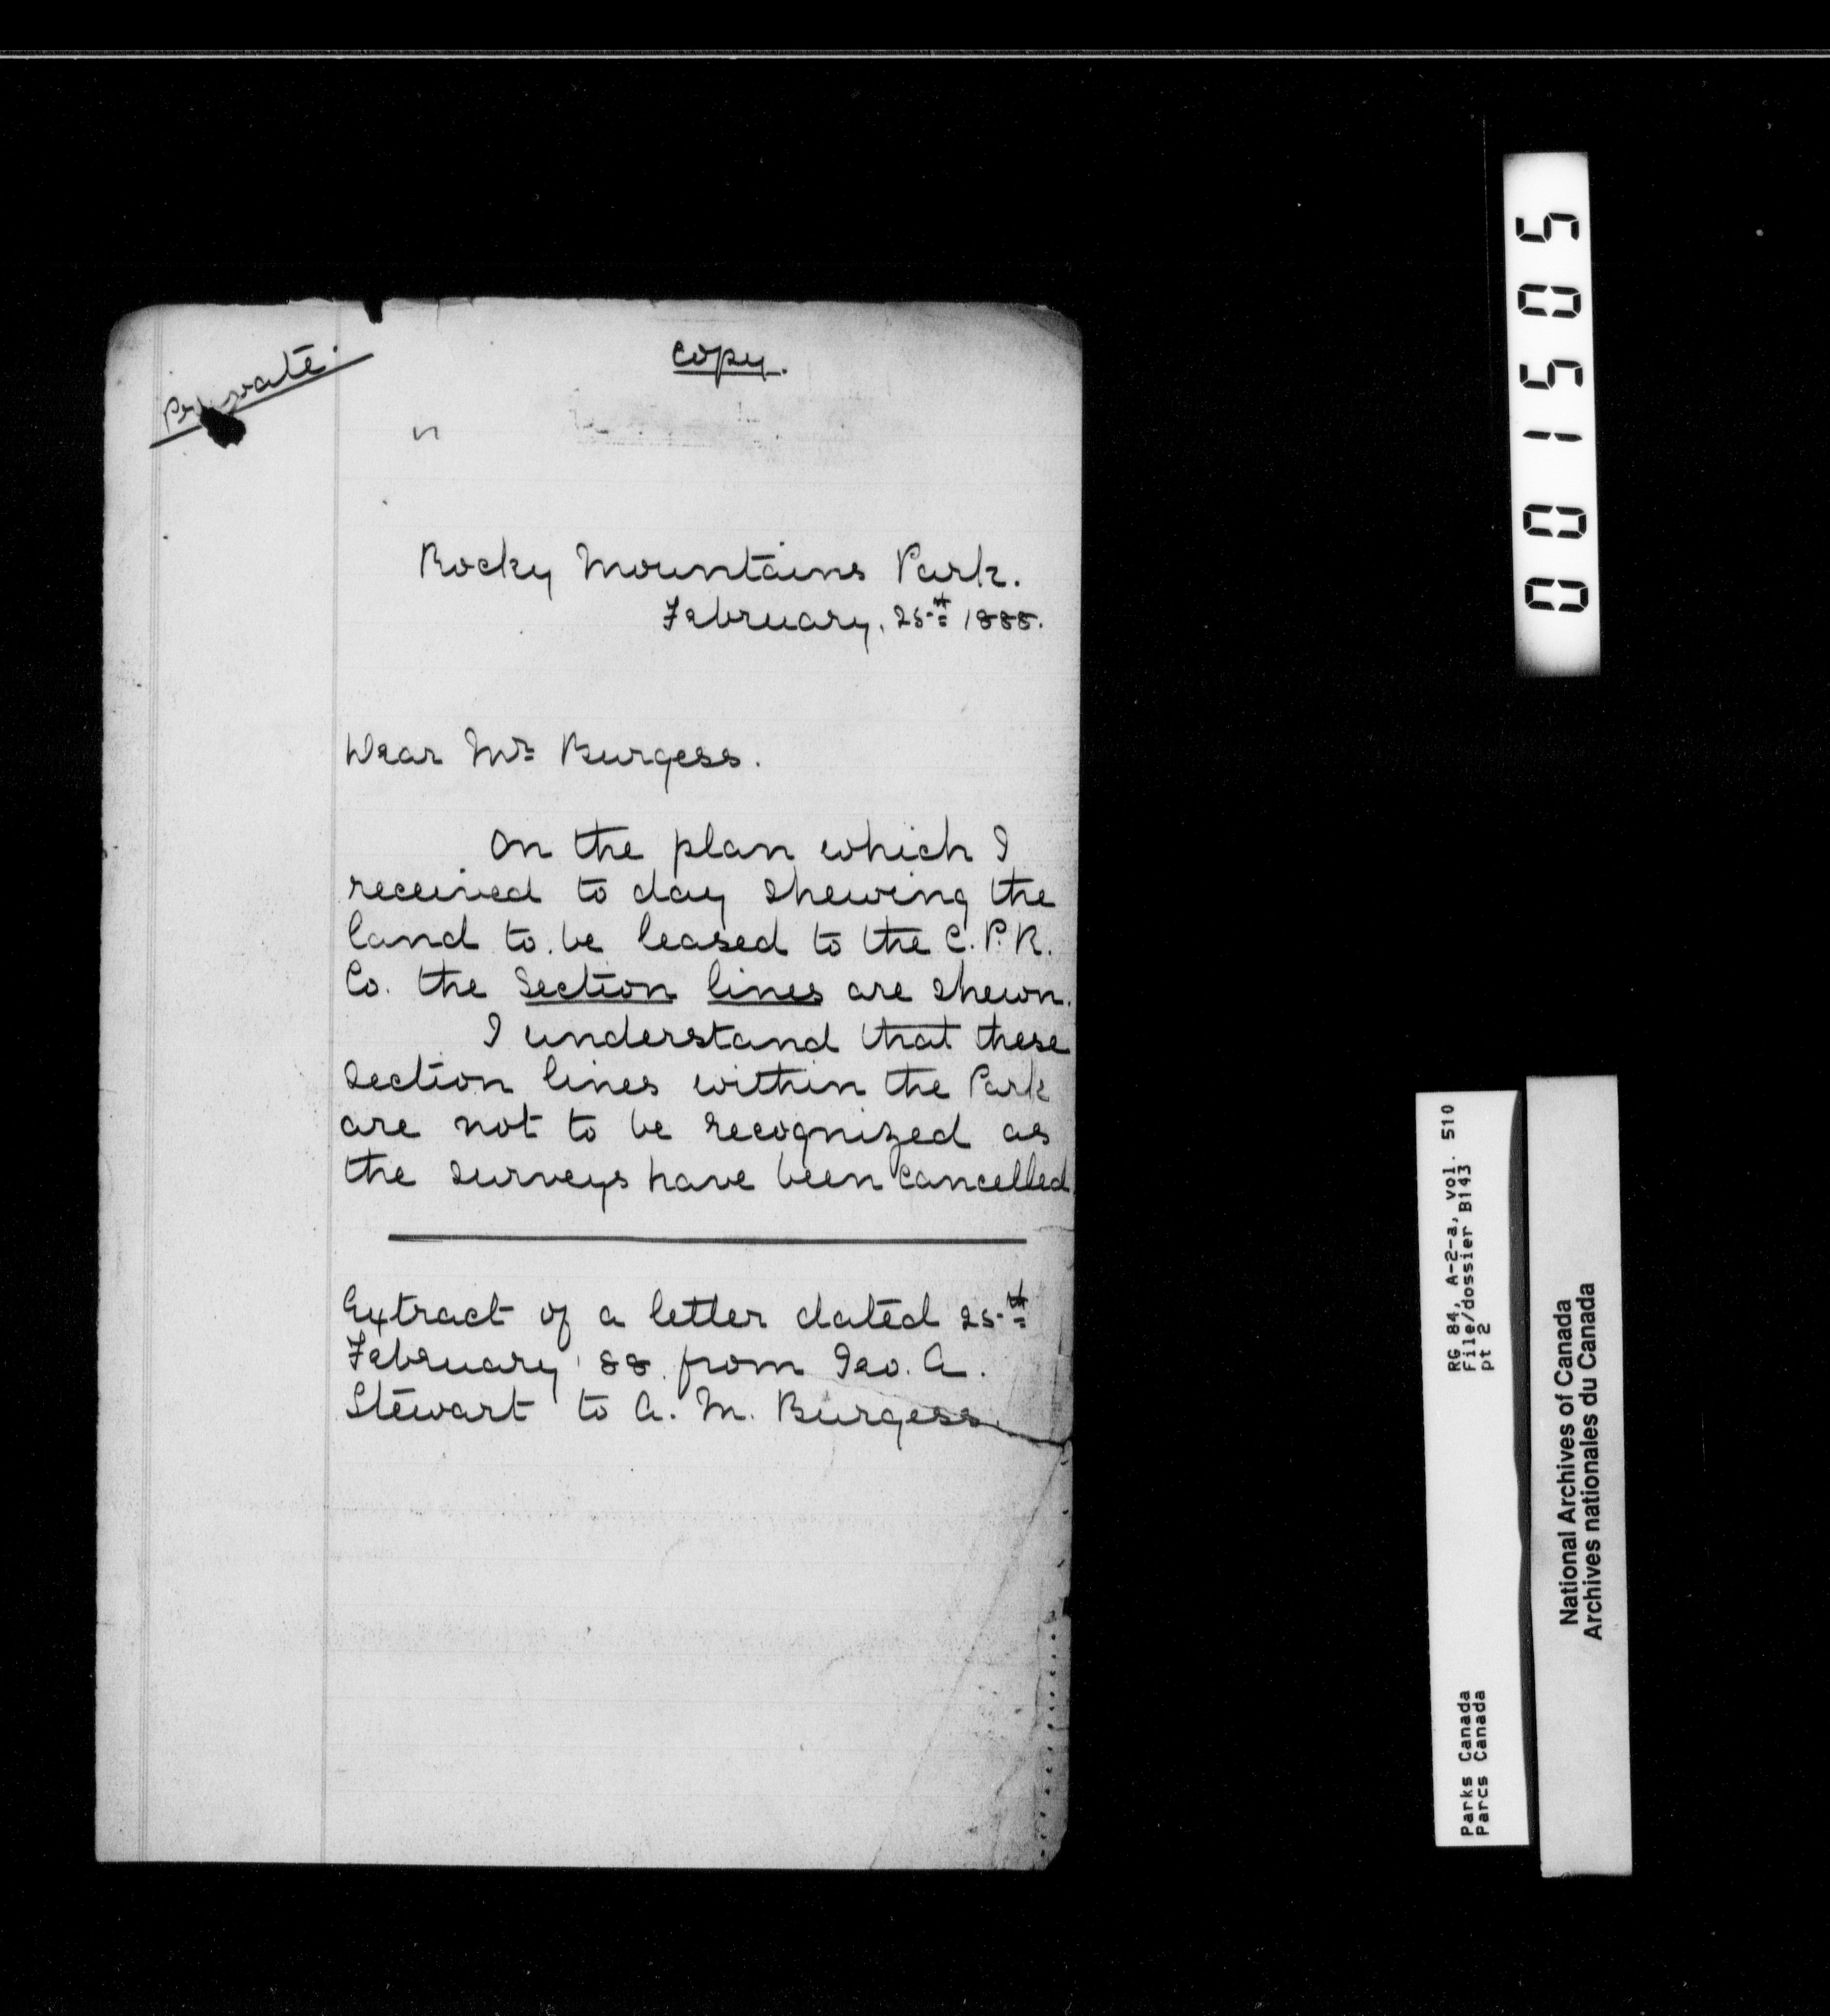 Private.
Copy.
Rocky Mountains Park.
February, 25th 1888.
Dear Mr Burgess.
On the plan which I
received to day shewing the
land to be leased to the C.P.R.
Co. the Section lines are shewn.
I understand that these
Section lines within the Park
are not to be recognized as
the surveys have been cancelled
Extract of a letter dated 25th
February '88 from Geo. A.
Stewart to A. M. Burgess.
001505
RG 84, A-2-a, Vol. 510
File/dossier B143
pt 2
Parks Canada
Parcs Canada
National Archives of Canada
Archives nationales du Canada